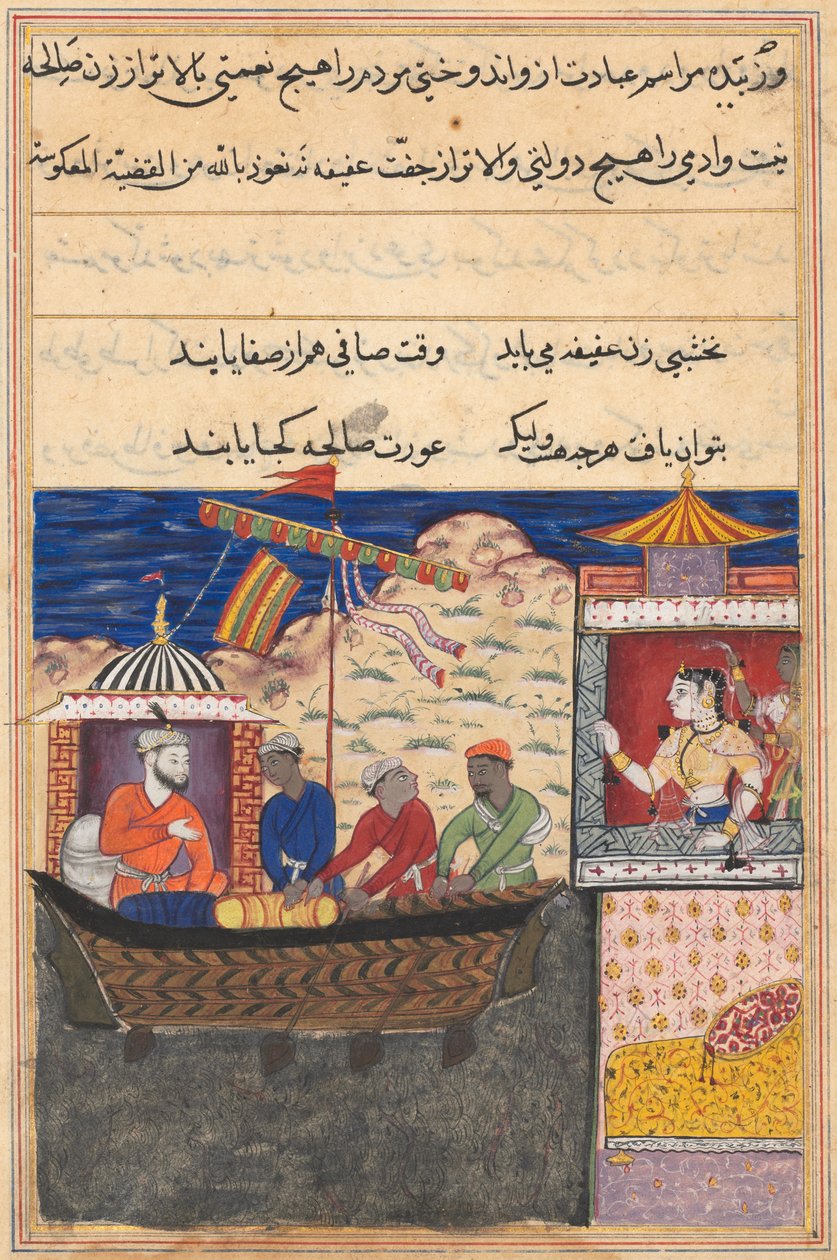 و زبیده مراسم عبادت از واند و ختی مردم را هیچ نعمتی بالاتر از زن صَالحه
نیست و ادمی را هیچ دولتی والاتر از جفّت عفیفه نَه نعوذ باللّه من القضیّة المعکوسة
نخشبی زن عفیفه می باید وقت صافی هم از صفا یابند
بتوان یافت هر چه هست ولیک عورت صالحه کجا یابند